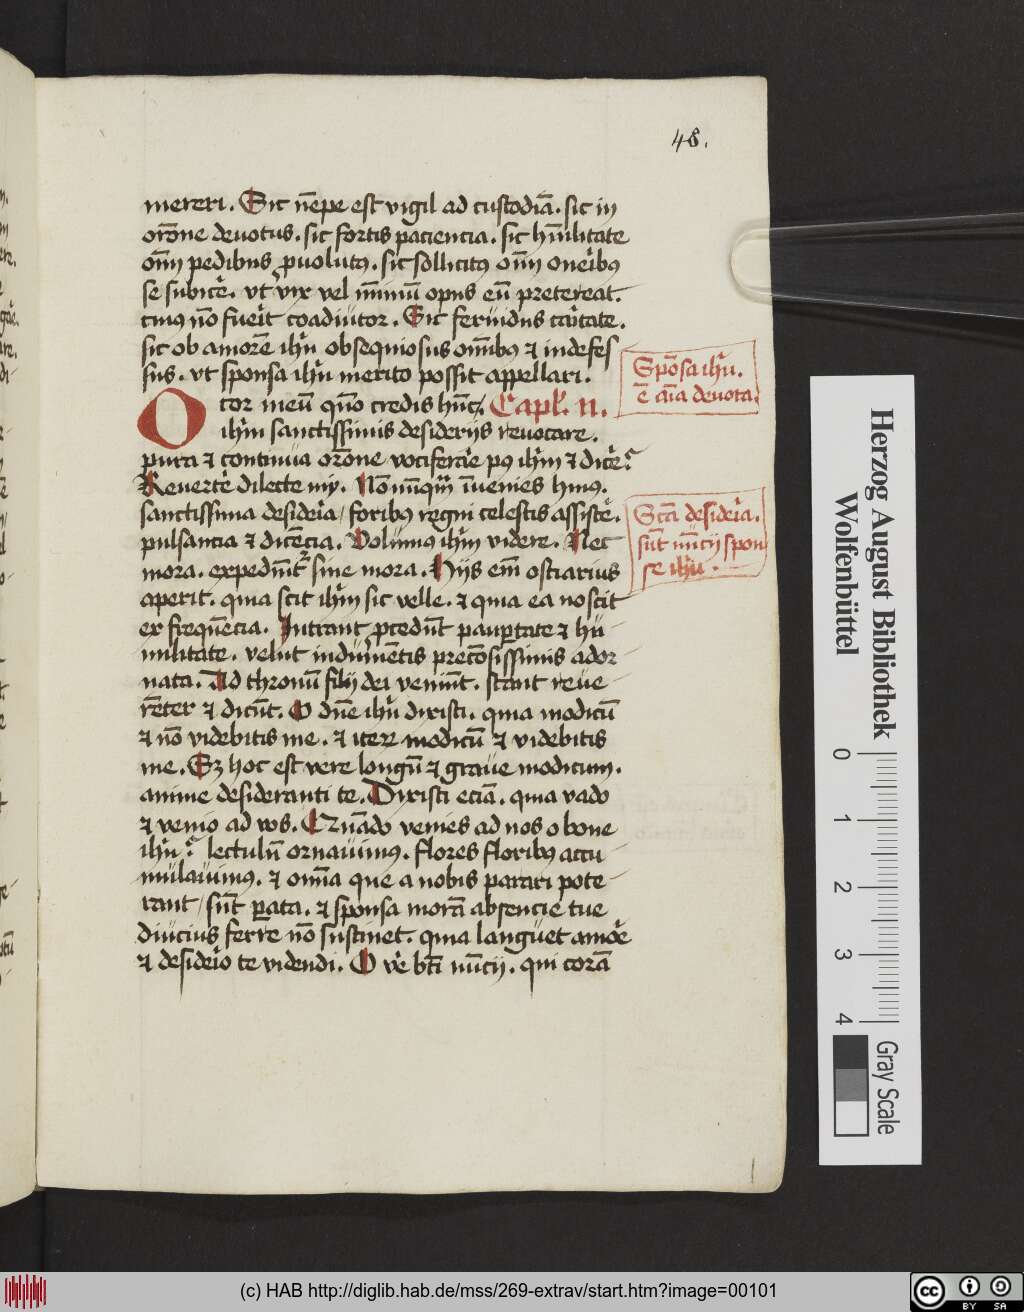 48.
mereri. Sic nēpe est vigil ad custodiā. sic in
orōne deuotus. sic fortis paciencia. sic hūilitate
om̄i pedibus ꝓuolutꝰ. sic sollicitꝰ om̄i oneribꝰ
se subice᷑. vt vix vel mīmū opus eū pretereat.
cuiꝰ nō fuerit coadiutor. Sic feruidus caritate.
sic ob amorē ihū obsequiosus omībꝰ ⁊ indefes
sus. vt sponsa ihū merito possit appellari.
Capl. II.
Otor meū quō credis hūc/
ihm̄ sanctissimis desiderijs reuocare.
pura ⁊ continua orōne vociferare pꝰ ihm̄ ⁊ dice᷑?
Reuertere dilecte mi. Nō nūqm̄ īuenies hmꝰ.
sanctissima desideria/ foribꝰ regni celestis assiste᷑.
pulsancia ⁊ dicēcia. Volumꝰ ihm̄ videre. Nec
mora. expediūt᷑ sine mora. Hijs em̄ ostiarius
aperit. quia scit ihm̄ sic velle. ⁊ quia ea noscit
ex frequēcia. Intrant ꝓcedūt paupertate ⁊ hu
militate. velut indumētis preciosissimis ador
nata. Ad thronū filij dei veniūt. stant reue
rēter ⁊ dicūt. O dn̄e ihū dixisti. quia modicū
⁊ nō videbitis me. ⁊ iterū modicū ⁊ videbitis
me. Sꝫ hoc est vere longū ⁊ graue modicum.
anime desideranti te. Dixisti eciā. quia vado
⁊ venio ad vos. Quādo venies ad nos o bone
ihū? lectulū ornauimꝰ. flores floribꝰ accu
mulauimꝰ. ⁊ omīa que a nobis parari pote
rant/ sūt ꝑata. ⁊ sponsa morā absencie tue
diucius ferre nō sustinet. quia languet amore
⁊ desiderio te videndi. O vere bt̄i nūcij. qui corā
Spōsa ihū.
ē aīa deuota.
Scā desideria.
sūt nūcij spon
se ihū.
Herzog August Bibliothek
Wolfenbüttel
0 1 2 3 4
Gray Scale
(c) HAB http://diglib.hab.de/mss/269-extrav/start.htm?image=00101
cc BY SA